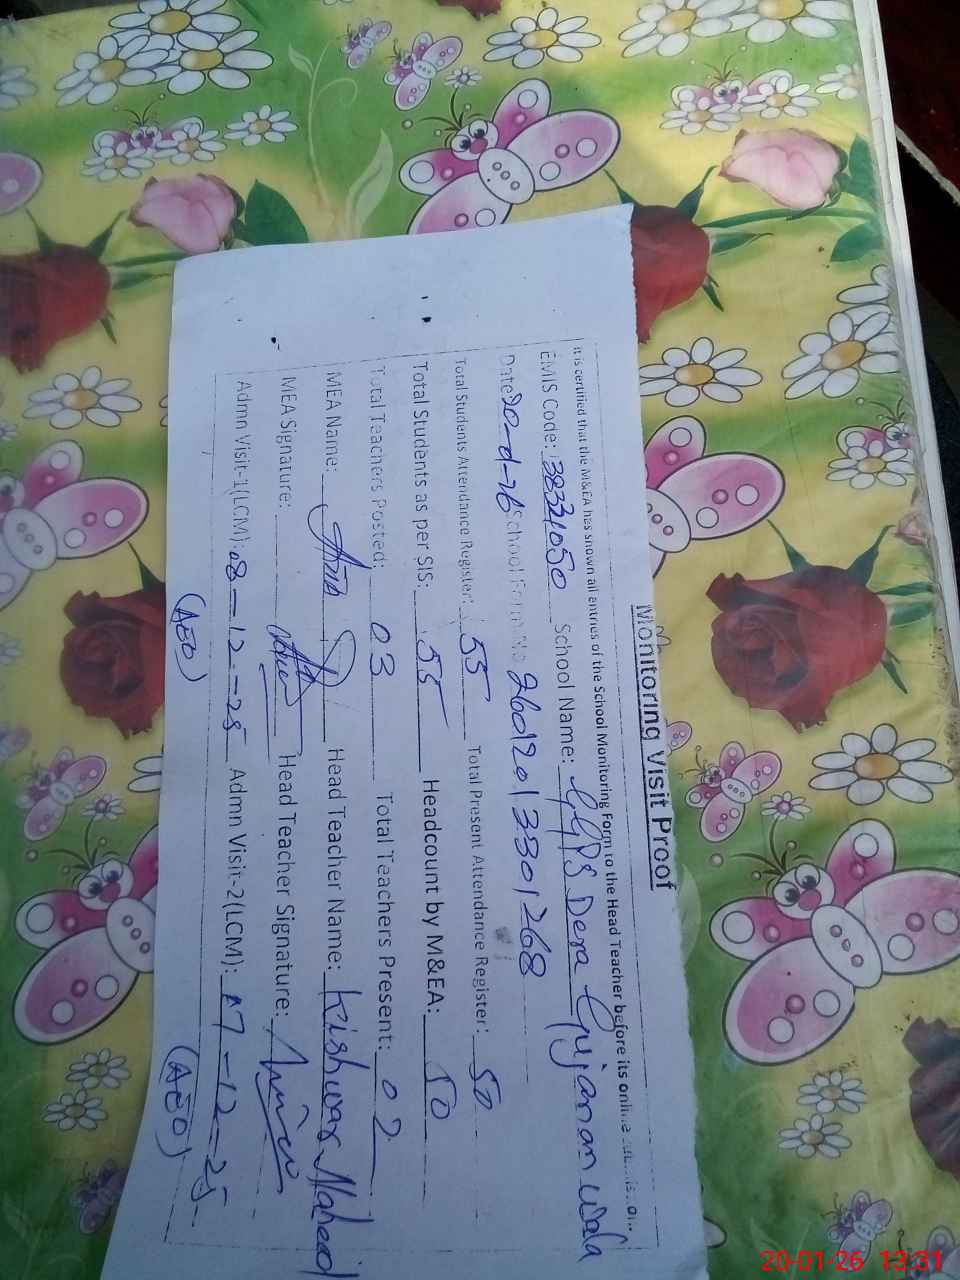 Monitoring Visit Proof
It is certified that the M&EA has shown all entries of the School Monitoring Form to the Head Teacher before its online
EMIS Code: 38331050 School Name: GGPS Dera Gujaran wala
Date: 20-01-26 School Form No 26012013301268
Total Students Attendance Register: 55 Total Present Attendance Register: 50
Total Students as per SIS: 55 Headcount by M&EA: 50
Total Teachers Posted: 03 Total Teachers Present: 02
MEA Name: Head Teacher Name: Kishwar Naheed
MEA Signature: Head Teacher Signature:
Admn Visit-1(LCM): 08-12-25 Admn Visit-2(LCM): 17-12-25
(AEO) (AEO)
20-01-26 13:31